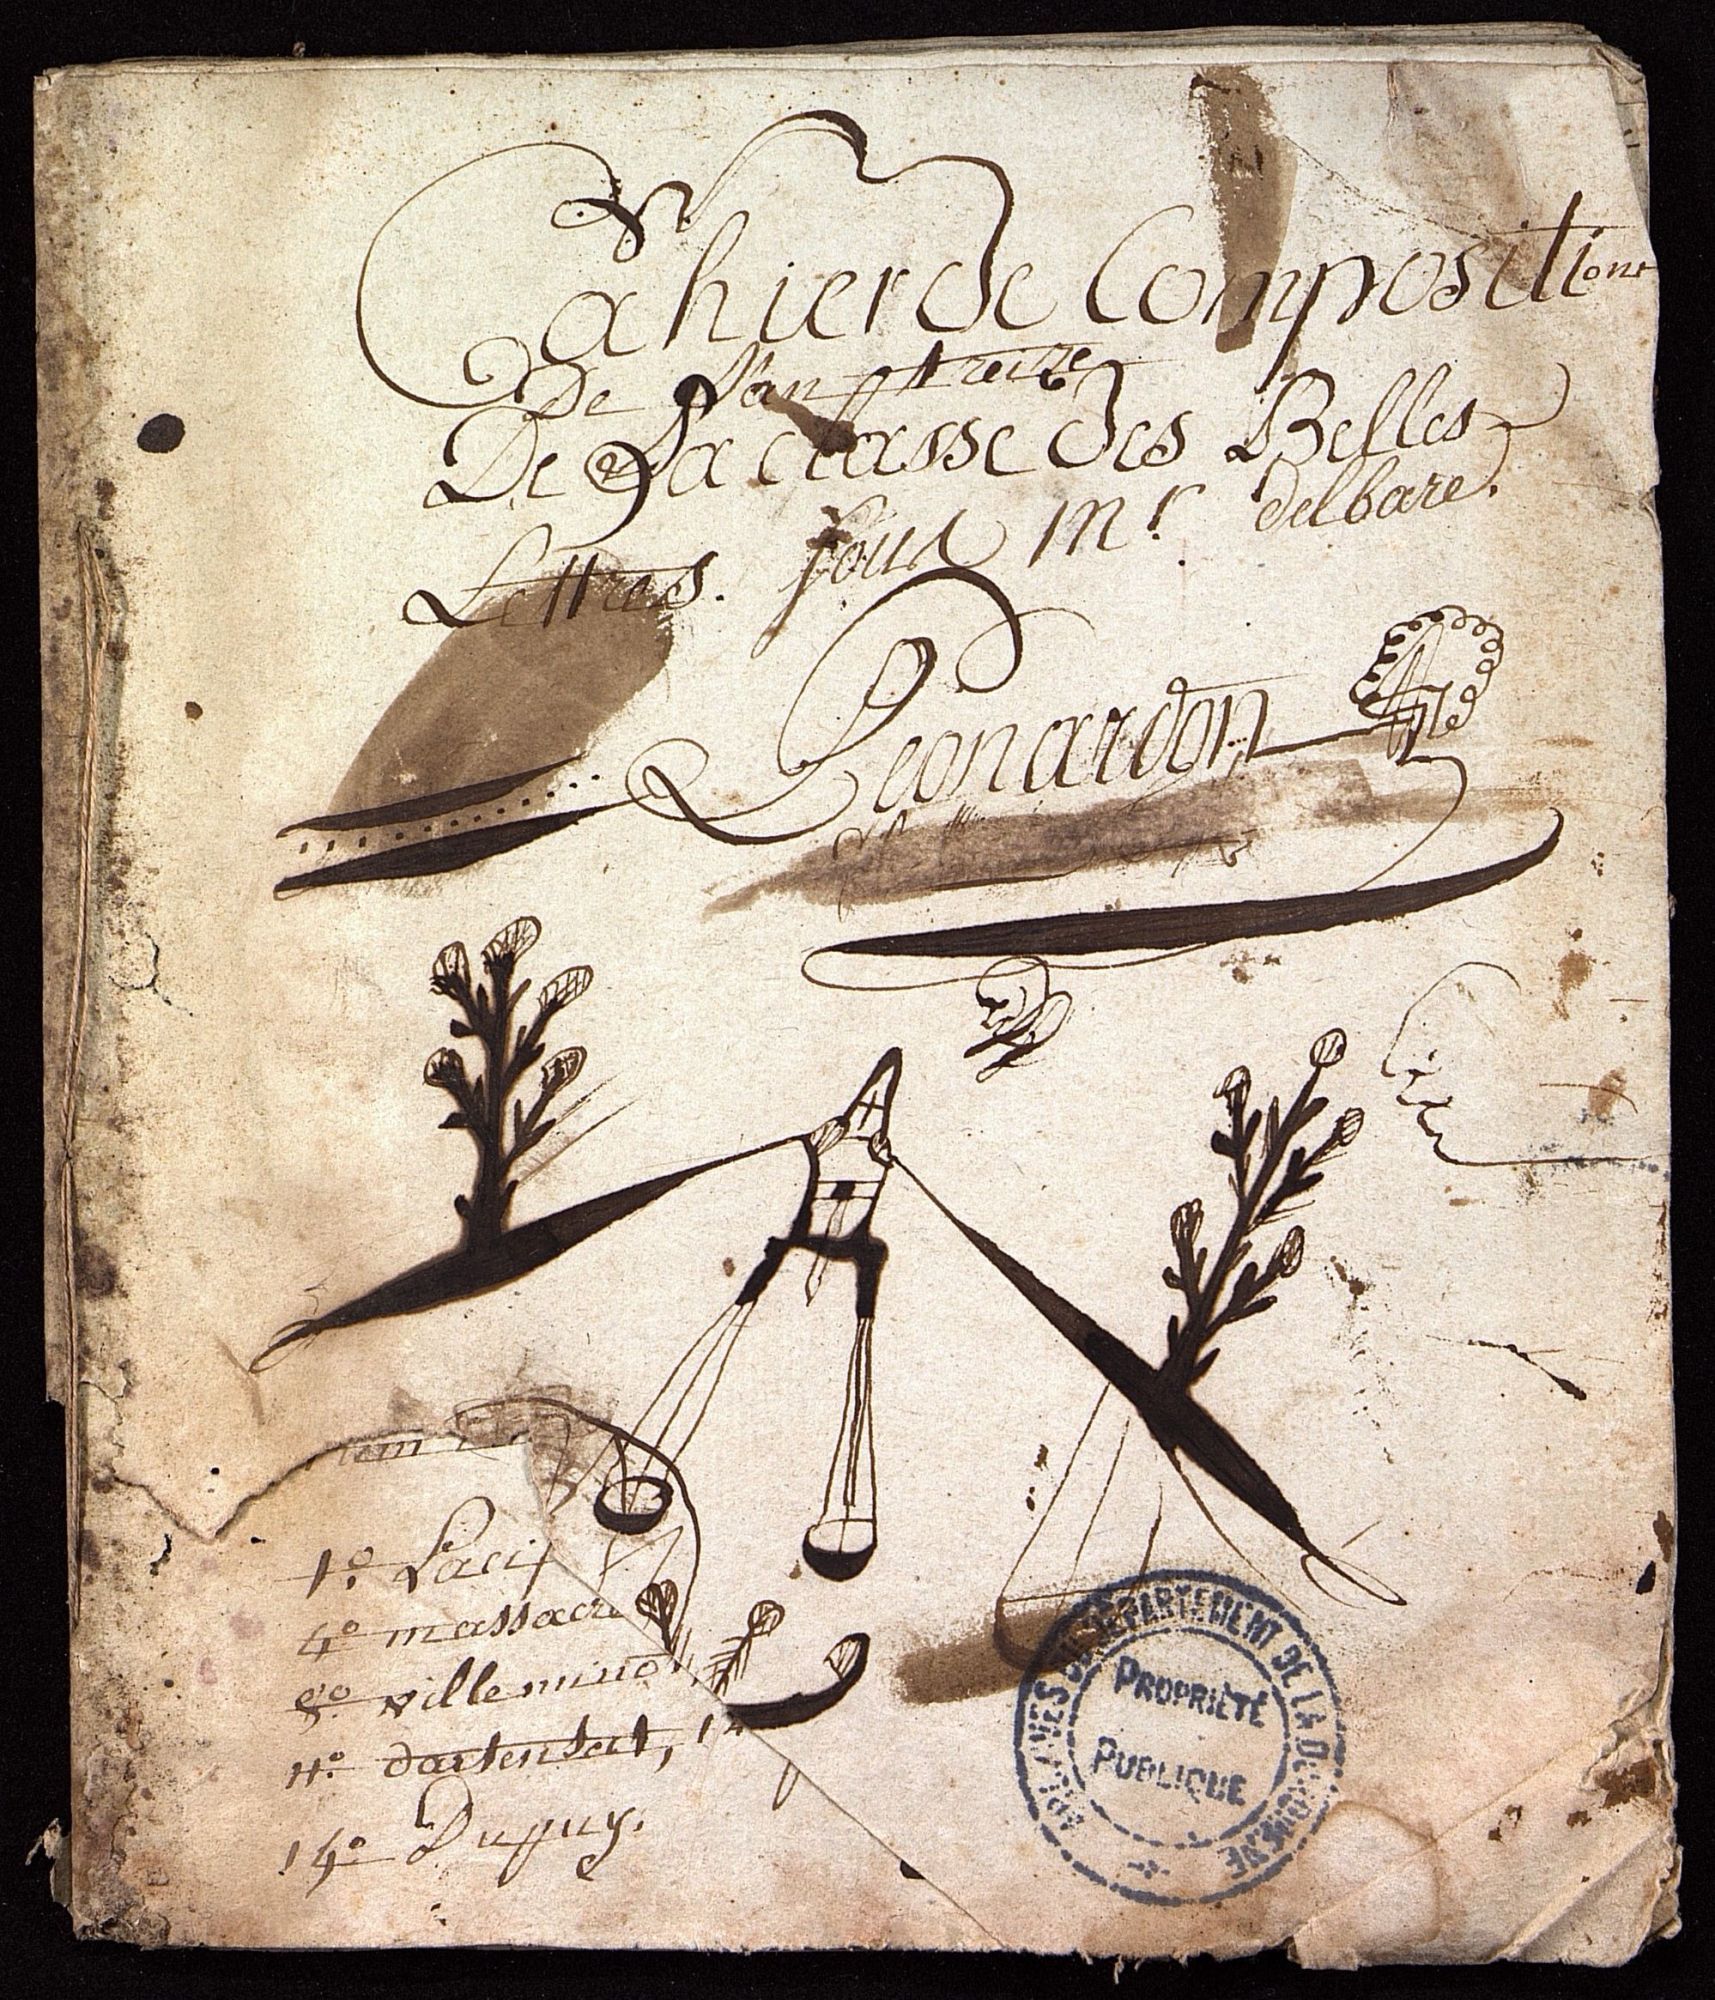 Cahier de Compositions
De l'an treize
De La classe des Belles
Lettres. sous Mr. delbare.
Leonardon
1º. Laci
4º massacré
8º villeminot
11º dartensat, 12
14º Dupuy.
ARCHIVES DU DEPARTEMENT DE LA DORDOGNE
PROPRIÉTÉ
PUBLIQUE